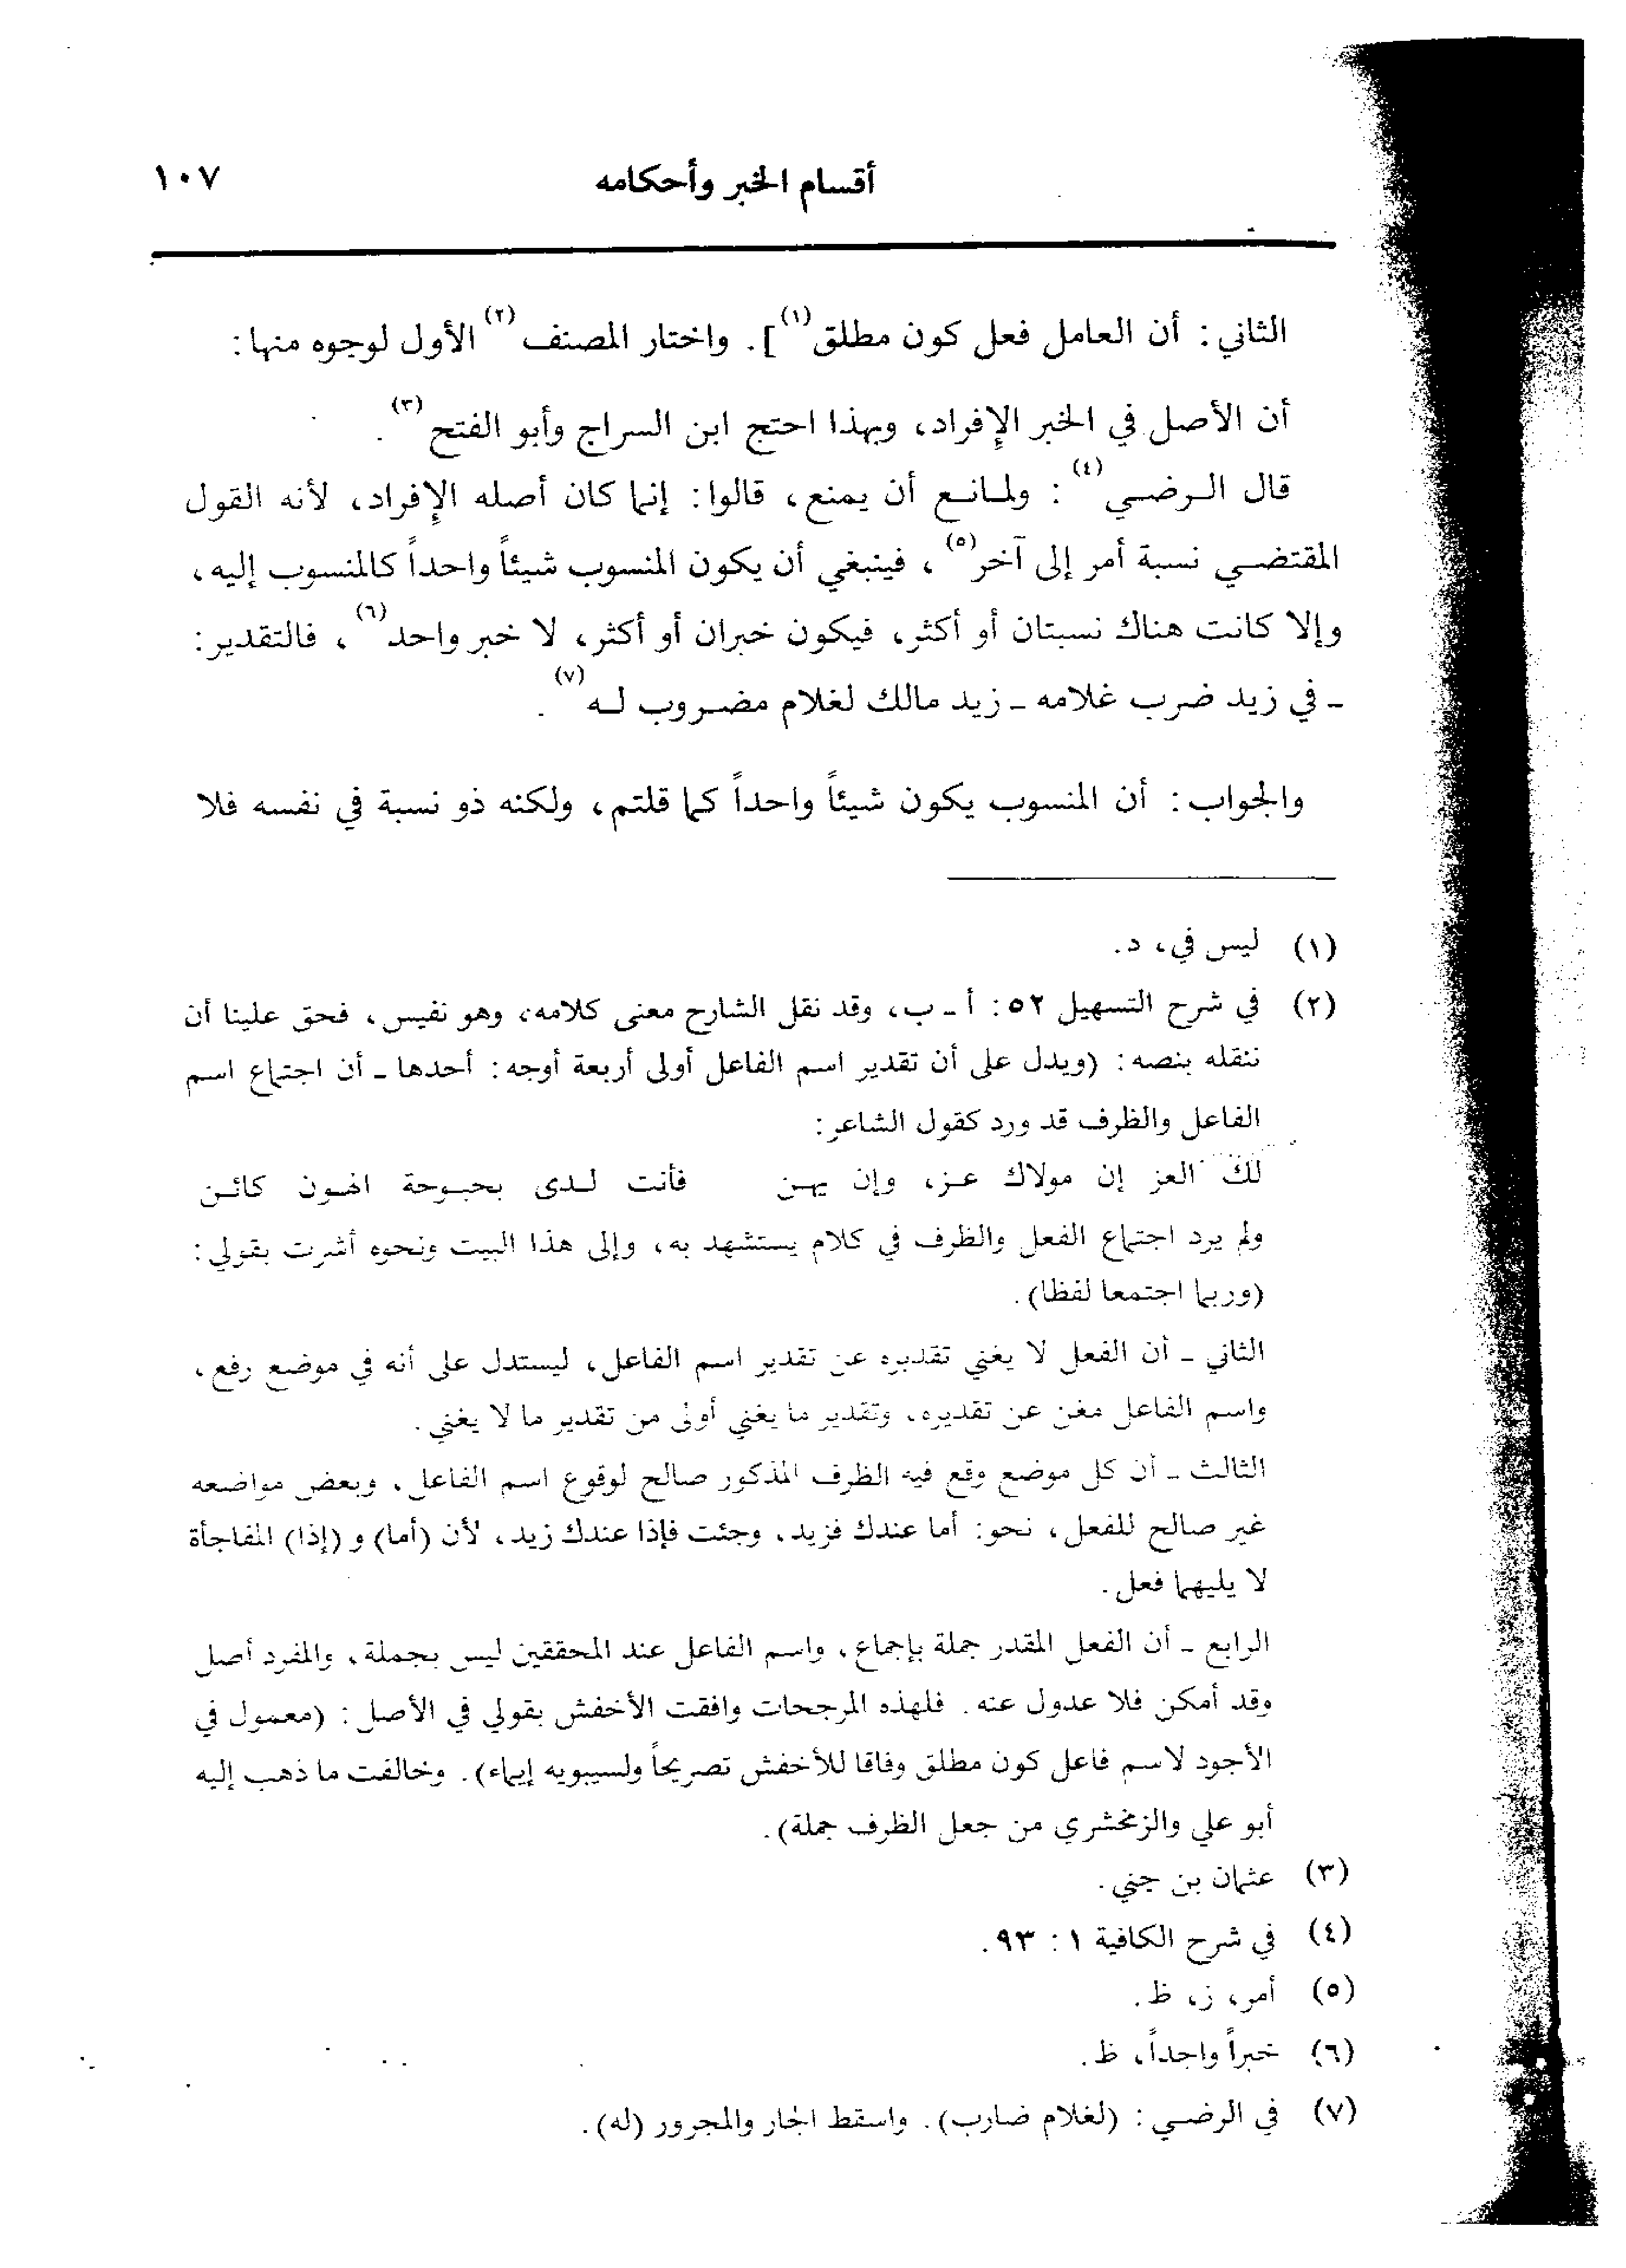 أقسام الخبر وأحكامه ١٠٧
الثاني: أن العامل فعل كون مطلق(١)]. واختار المصنف(٢) الأول لوجوه منها:
أن الأصل في الخبر الإفراد، وبهذا احتج ابن السراج وأبو الفتح(٣).
قال الرضي(٤): ولمانع أن يمنع، قالوا: إنما كان أصله الإفراد، لأنه القول
المقتضي نسبة أمر إلى آخر(٥)، فينبغي أن يكون المنسوب شيئاً واحداً كالمنسوب إليه،
وإلا كانت هناك نسبتان أو أكثر، فيكون خبران أو أكثر، لا خبر واحد(٦)، فالتقدير:
- في زيد ضرب غلامه - زيد مالك لغلام مضروب له(٧).
والجواب: أن المنسوب يكون شيئاً واحداً كما قلتم، ولكنه ذو نسبة في نفسه فلا
(١) ليس في، د.
(٢) في شرح التسهيل ٥٢: أ - ب، وقد نقل الشارح معنى كلامه، وهو نفيس، فحق علينا أن
ننقله بنصه: (ويدل على أن تقدير اسم الفاعل أولى أربعة أوجه: أحدها - أن اجتماع اسم
الفاعل والظرف قد ورد كقول الشاعر:
لك العز إن مولاك عز، وإن يهن فأنت لدى بحبوحة الهون كائن
ولم يرد اجتماع الفعل والظرف في كلام يستشهد به، وإلى هذا البيت ونحوه أشرت بقولي:
(وربما اجتمعا لفظا).
الثاني - أن الفعل لا يغني تقديره عن تقدير اسم الفاعل، ليستدل على أنه في موضع رفع،
واسم الفاعل مغن عن تقديره، وتقدير ما يغني أولى من تقدير ما لا يغني.
الثالث - أن كل موضع وقع فيه الظرف المذكور صالح لوقوع اسم الفاعل، وبعض مواضعه
غير صالح للفعل، نحو: أما عندك فزيد، وجئت فإذا عندك زيد، لأن (أما) و (إذا) المفاجأة
لا يليهما فعل.
الرابع - أن الفعل المقدر جملة بإجماع، واسم الفاعل عند المحققين ليس بجملة، والمفرد أصل
وقد أمكن فلا عدول عنه. فلهذه المرجحات وافقت الأخفش بقولي في الأصل: (معمول في
الأجود لاسم فاعل كون مطلق وفاقا للأخفش تصريحاً ولسيبويه إيماء). وخالفت ما ذهب إليه
أبو علي والزمخشري من جعل الظرف جملة).
(٣) عثمان بن جني.
(٤) في شرح الكافية ١: ٩٣.
(٥) أمر، ز، ظ.
(٦) خبراً واحداً، ظ.
(٧) في الرضي: (لغلام ضارب). واسقط الجار والمجرور (له).